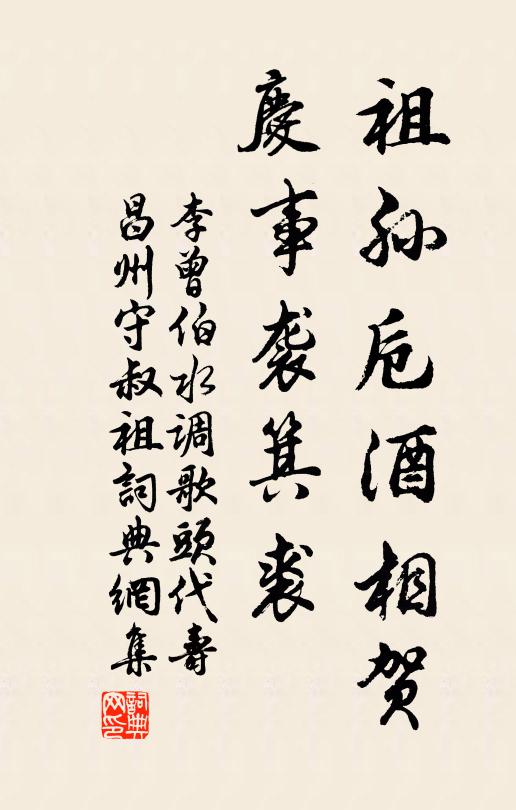 祖孙卮酒相贺
慶事袭箕裘
李曾伯水调歌頭代壽
昌州守叔祖詞典網集
詞典网印